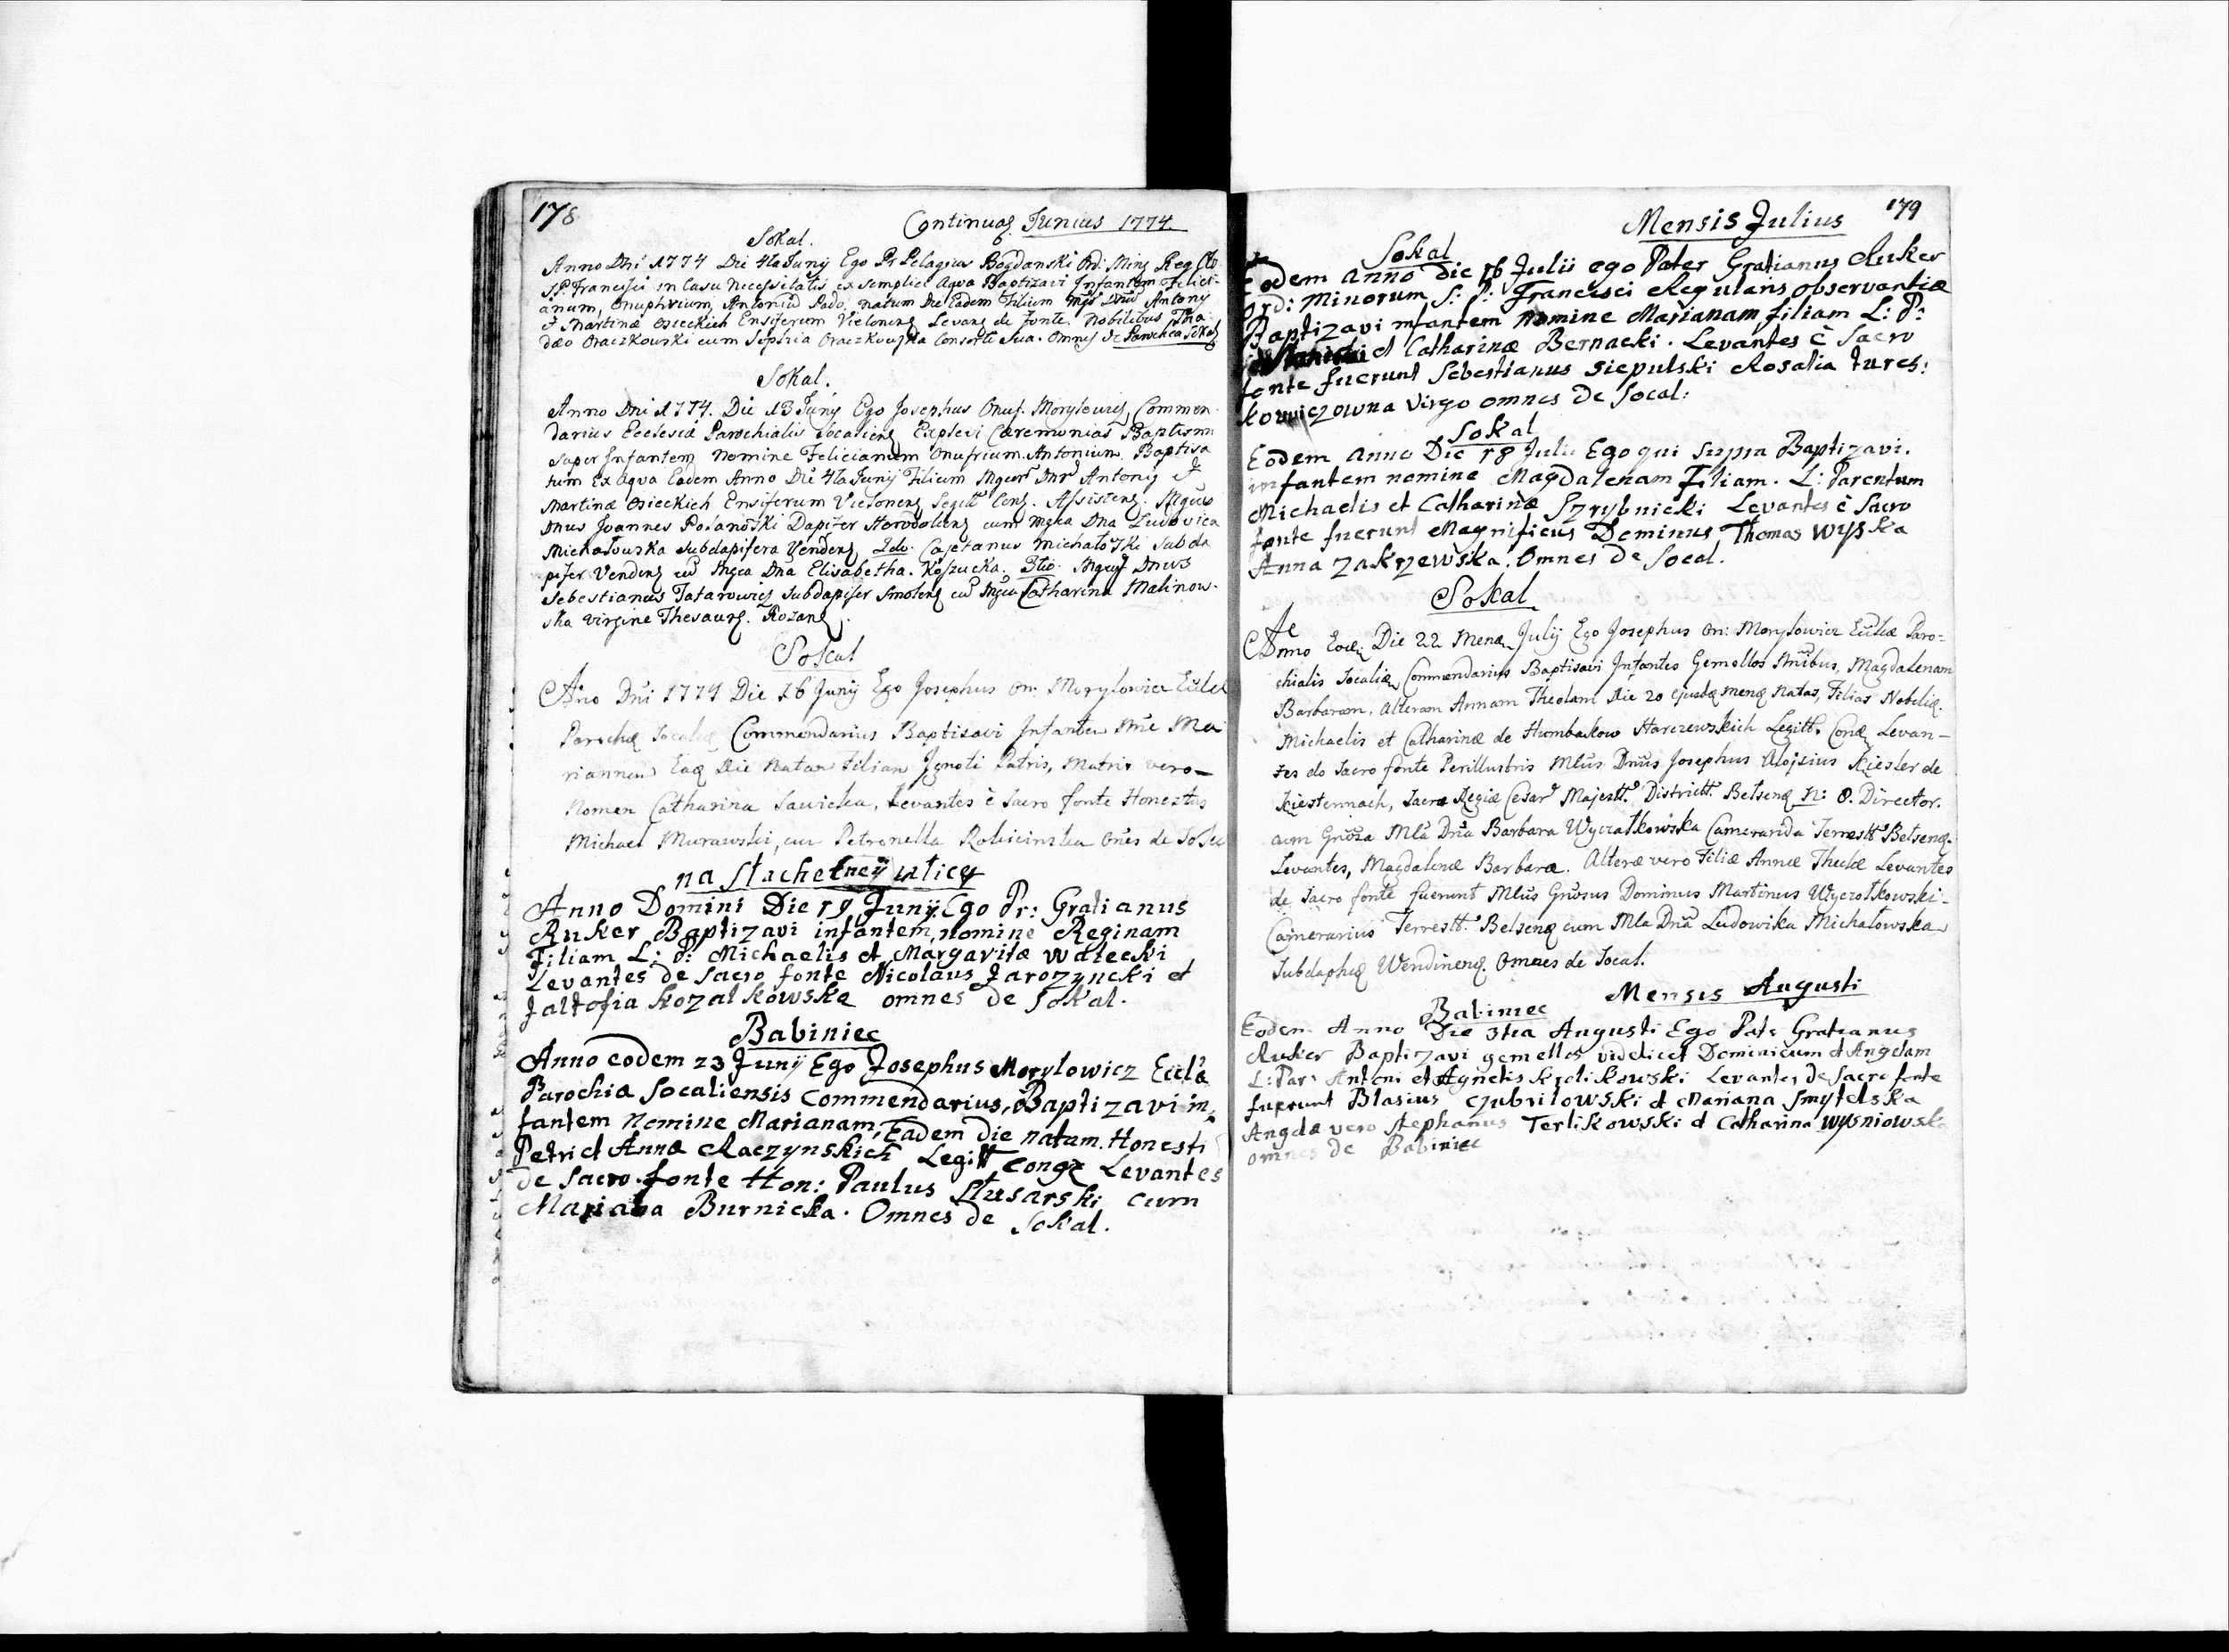 178
Continuaõ Junius 1774.
Sokal.
Anno Dni 1774 Die 4ta Junij Ego Pr Pelagius Bogdanski Ord: Min Reg Obs
SP Francisci in Casu Necessitatis ex semplici Aqva Baptizavi Infantem Felici-
anum, Onuphrium, Antoniũ Pado. natum Die Eadem Filium Dnũ Antonij
& Martinæ Osieckich Ensiferum Vielonens Levans de fonte. Nobilibus Tha-
dæo Oraczkowski cum Sophia Oraczkowska Consorte Sua. Omnes de Parochia Sokal
Sokal.
Anno Dni 1774. Die 13 Junij Ego Josephus Onuf. Morylowicz, Commen-
darius Ecclesiæ Parochialis Socaliens Explevi Cæremonias Baptismi
super Infantem Nomine Felicianum Onufrium Antonium Baptisa
tum Ex aqva Eadem Anno Die 4ta Junij Filium Mgcor Dnr Antonij &
Martinæ Osieckich Ensiferum Vielonens Legitt Conj. Assistens. Mgcus
Dnus Joannes Polanoski Dapifer Horodolens cum Mgca Dna Ludovica
Michałowska Subdapifera Vendens 2do. Cajetanus Michałoski Subda
pifer Vendens cũ Mgca Dna Elisabetha. Koszucka. 3tio. Mgcus Dnus
Sebestianus Tatarowicz Subdapifer Smolens cũ Mgca Catharina Malinow-
ska virgine Thesaurs. Rozans.
Sokal
Año Dni 1774 Die 16 Junij Ego Josephus On: Morylowicz Eccles
Parochiæ Commendarius Baptisavi Infantem Mne Ma
riannam Eaq Die Natam Filiam Ignoti Patris, Matris vero
Nomen Catharina Sawicka, Levantes è Sacro fonte Honestus
Michael Murawski, cum Petronella Rokicinska Oñes de Sokal
na Slacheckiey ulicy
Anno Domini Die 19 Junij Ego Pr: Gratianus
Ruker Baptizavi infantem, nomine Reginam
Filiam L: P: Michaelis et Margaritæ Walecki
Levantes de Sacro fonte Nicolaus Jarozyncki et
Jaltofia Kozalkowska omnes de Sokal.
Babiniec
Anno eodem 23 Junij Ego Josephus Morylowicz Eccl'a
Parochia Socaliensis Commendarius, Baptizavi in,
fantem Nomine Marianam, Eadem die natam. Honesti
Petri et Annæ Raczynskich Legitt Congæ Levantes
de Sacro fonte Hon: Paulus Slusarski cum
Mariana Burnicka. Omnes de Sokal.
179
Mensis Julius
Sokal
Eodem anno Die 16 Julii ego Pater Gratianus Ruker
Ord: Minorum S: P: Francisci Regularis observantiæ
Baptizavi infantem Nomine Marianam filiam L: P:
et Catharinæ Bernacki. Levantes è Sacro
fonte fuerunt Sebestianus Siepulski Rosalia Tures:
kowiczowna Virgo omnes de Socal:
Sokal
Eodem Anno Die 18 Julii Ego qui supra Baptizavi.
infantem nomine Magdalenam Filiam. L: Parentum
Michaelis et Catharinæ Szrybnicki Levantes è Sacro
fonte fuerunt Magnificus Dominus Thomas Wyska
Anna Zakrzewska. Omnes de Socal.
Sokal
Anno Eode Die 22 Mena Julij Ego Josephus On: Morylowicz Eccliæ Paro=
chialis Socaliæ Commendarius Baptisavi Infantes Gemellos Mnibus, Magdalenam
Barbaram. Alteram Annam Theclam Die 20 ejusdæ menæ Natas, Filias Nobiliæ.
Michaelis et Catharinæ de Humbackow Harczewskich Legitt. Conæ Levan-
tes de Sacro fonte Perillustris Mlus Dnus Josephus Alojsius Kiesler de
Kiesternach, Sacræ Regiæ Cesar Majestt. Districtt. Betsenæ n: 8. Director.
cum Grosa Mla Dna Barbara Wyczałkowska Cameranda Terrestt Betsenæ.
Levantes, Magdalenæ Barbaræ. Alteræ vero Filiæ Annæ Theclæ Levantes
de Sacro fonte fuerunt Mlus Grosus Dominus Martinus Wyczołkowski-
Camerarius Terrestt. Betsenæ cum Mla Dna Ludowika Michałowska
Subdaphæ Wendinenæ. Omnes de Socal.
Mensis Augusti
Babiniec
Eodem Anno Die 3tia Augusti Ego Patr Gratianus
Ruker Baptizavi gemellos videlicet Dominicum et Angelam
L: Par: Antoni et Agnetis Krolikowski Levantes de Sacro fonte
fuerunt Blasius Gubrilowski et Mariana Smytelska
Angelæ vero Stephanus Terlikowski et Catharina Wysniowska
omnes de Babiniec